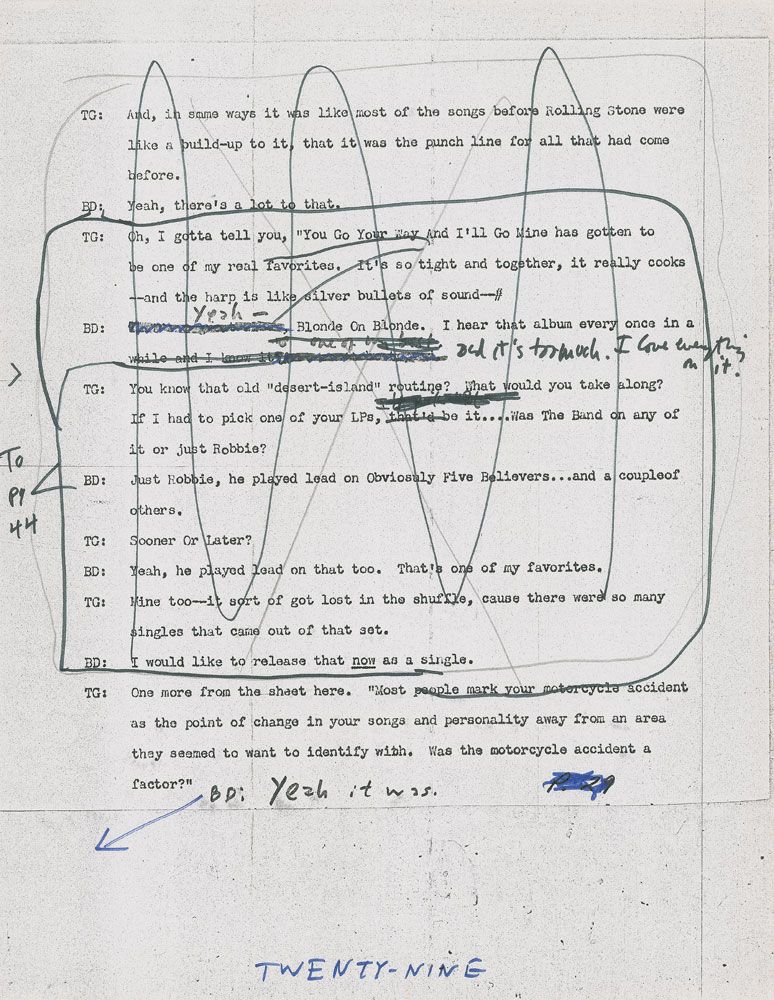 TG: And, in some ways it was like most of the songs before Rolling Stone were
like a build-up to it, that it was the punch line for all that had come
before.
BD: Yeah, there's a lot to that.
TG: Oh, I gotta tell you, "You Go Your Way And I'll Go Mine has gotten to
be one of my real favorites. It's so tight and together, it really cooks
--and the harp is like silver bullets of sound--#
Yeah —
BD: Blonde On Blonde. I hear that album every once in a
one of
while and I know it and it's too much. I love everything
on it!
> TG: You know that old "desert-island" routine? What would you take along?
If I had to pick one of your LPs, that'd be it....Was The Band on any of
it or just Robbie?
To
P1
44
BD: Just Robbie, he played lead on Obviosuly Five Believers...and a coupleof
others.
TG: Sooner Or Later?
BD: Yeah, he played lead on that too. That's one of my favorites.
TG: Mine too--it sort of got lost in the shuffle, cause there were so many
singles that came out of that set.
BD: I would like to release that now as a single.
TG: One more from the sheet here. "Most people mark your motorcycle accident
as the point of change in your songs and personality away from an area
they seemed to want to identify with. Was the motorcycle accident a
factor?" BD: Yeah it was. P. 29
TWENTY-NINE